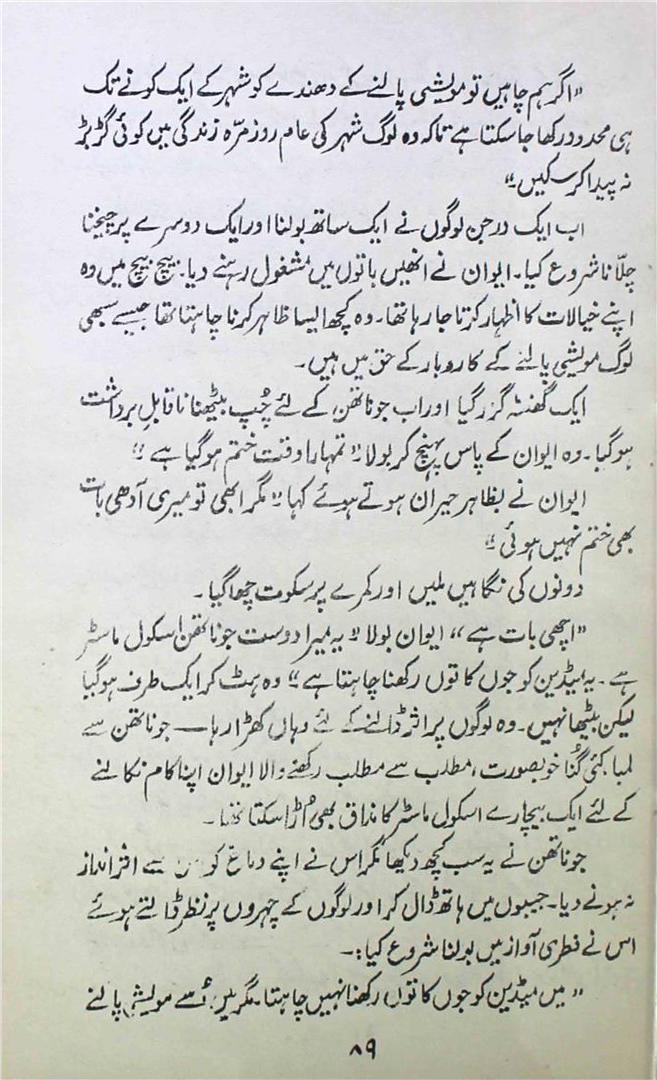 ”اگر ہم چاہیں تو مویشی پالنے کے دھندے کو شہر کے ایک کونے تک
ہی محدود رکھا جا سکتا ہے تاکہ وہ لوگ شہر کی عام روز مرّہ زندگی میں کوئی گڑبڑ
نہ پیدا کر سکیں۔“
اب ایک درجن لوگوں نے ایک ساتھ بولنا اور ایک دوسرے پر چیخنا
چلّانا شروع کیا۔ ایوان نے انھیں باتوں میں مشغول رہنے دیا۔ بیچ بیچ میں وہ
اپنے خیالات کا اظہار کرتا جا رہا تھا۔ وہ کچھ ایسا ظاہر کرنا چاہتا تھا جیسے سبھی
لوگ مویشی پالنے کے کاروبار کے حق میں ہیں۔
ایک گھنٹہ گزر گیا اور اب جوناتھن کے لئے چُپ بیٹھنا ناقابلِ برداشت
ہو گیا۔ وہ ایوان کے پاس پہنچ کر بولا ”تمہارا وقت ختم ہو گیا ہے“
ایوان نے بظاہر حیران ہوتے ہوئے کہا ”مگر ابھی تو میری آدھی بات
بھی ختم نہیں ہوئی“
دونوں کی نگاہیں ملیں اور کمرے پر سکوت چھا گیا۔
”اچھی بات ہے“ ایوان بولا ”یہ میرا دوست جوناتھن اسکول ماسٹر
ہے۔ یہ میڈین کو جوں کا توں رکھنا چاہتا ہے“ وہ ہٹ کر ایک طرف ہو گیا
لیکن بیٹھا نہیں۔ وہ لوگوں پر اثر ڈالنے کے لئے وہاں کھڑا رہا — جوناتھن سے
لمبا، کئی گُنا خوبصورت، مطلب سے مطلب رکھنے والا ایوان اپنا کام نکالنے
کے لئے ایک بیچارے اسکول ماسٹر کا مذاق بھی اُڑا سکتا تھا۔
جوناتھن نے یہ سب کچھ دیکھا مگر اس نے اپنے دماغ کو سے اثر انداز
نہ ہونے دیا۔ جیبوں میں ہاتھ ڈال کر اور لوگوں کے چہروں پر نظر ڈالتے ہوئے
اس نے فطری آواز میں بولنا شروع کیا:۔
”میں میڈین کو جوں کا توں رکھنا نہیں چاہتا۔ مگر میں اُسے مویشی پالنے
۸۹